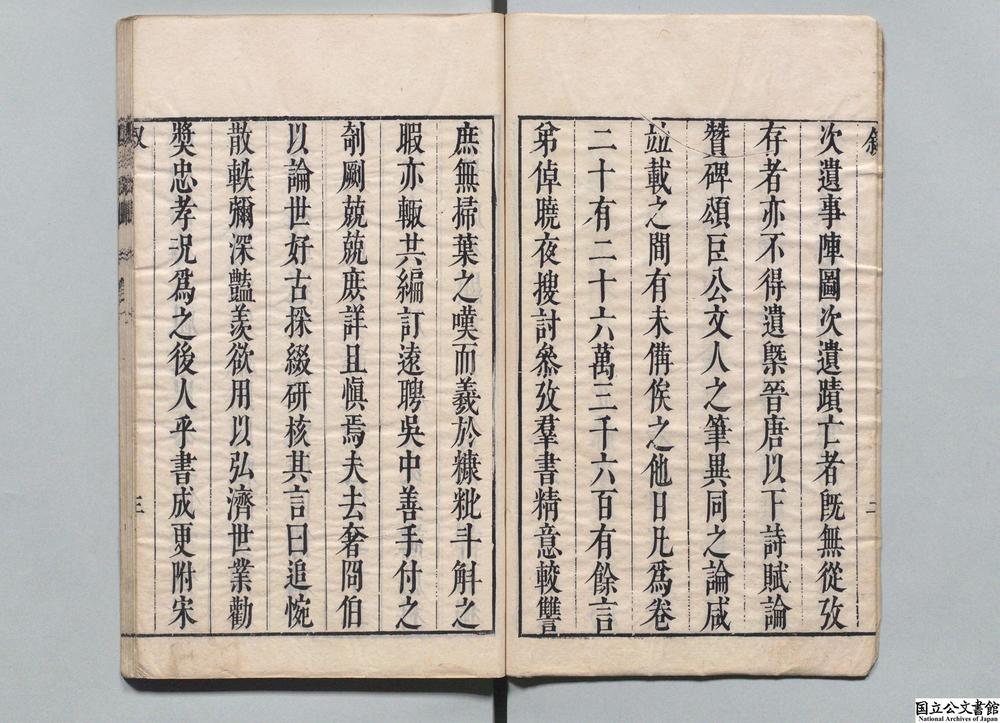 敘 二
次遺事陣圖次遺蹟亡者旣無從攷
存者亦不得遺槩晉唐以下詩賦論
贊碑頌巨公文人之筆異同之論咸
竝載之間有未備俟之他日凡爲卷
二十有二十六萬三千六百有餘言
弟倬曉夜搜討叅攷羣書精意較讐
庶無掃葉之嘆而義於糠粃斗斛之
暇亦輙共編訂遠聘吳中善手付之
剞劂兢兢庶詳且愼焉夫去奢冏伯
以論世好古採綴硏核其言曰追惋
散軼彌深豔羨欲用以弘濟世業勸
奬忠孝況爲之後人乎書成更附宋
三
国立公文書館
National Archives of Japan